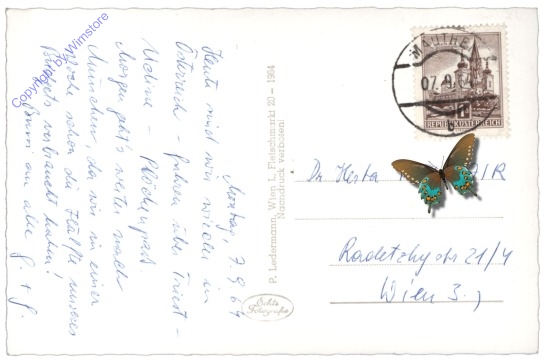 Montag, 7.9.64
Heute sind wir wieder in
Österreich - fuhren über Triest -
Udine - Plöckenpass
Morgen geht's weiter nach
München, da wir in einer
Woche schon die Hälfte unseres
Budgets verbraucht haben!
an alle
P. Ledermann, Wien I., Fleischmarkt 20 - 1964
Nachdruck verboten!
Echte
Fotografie
MAUTHEN
REPUBLIK ÖSTERREICH
b
Dr Herta
Radetzkystr 21/4
Wien 3.,
Copyright by Wimstore